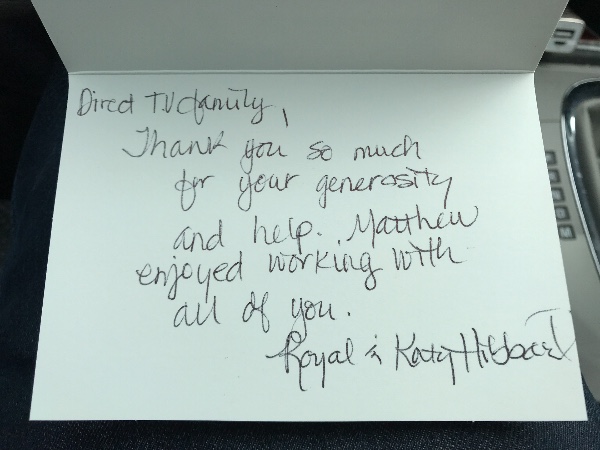 Direct TV family,
Thank you so much
for your generosity
and help. Matthew
enjoyed working with
all of you.
Royal & Katy Hibbard